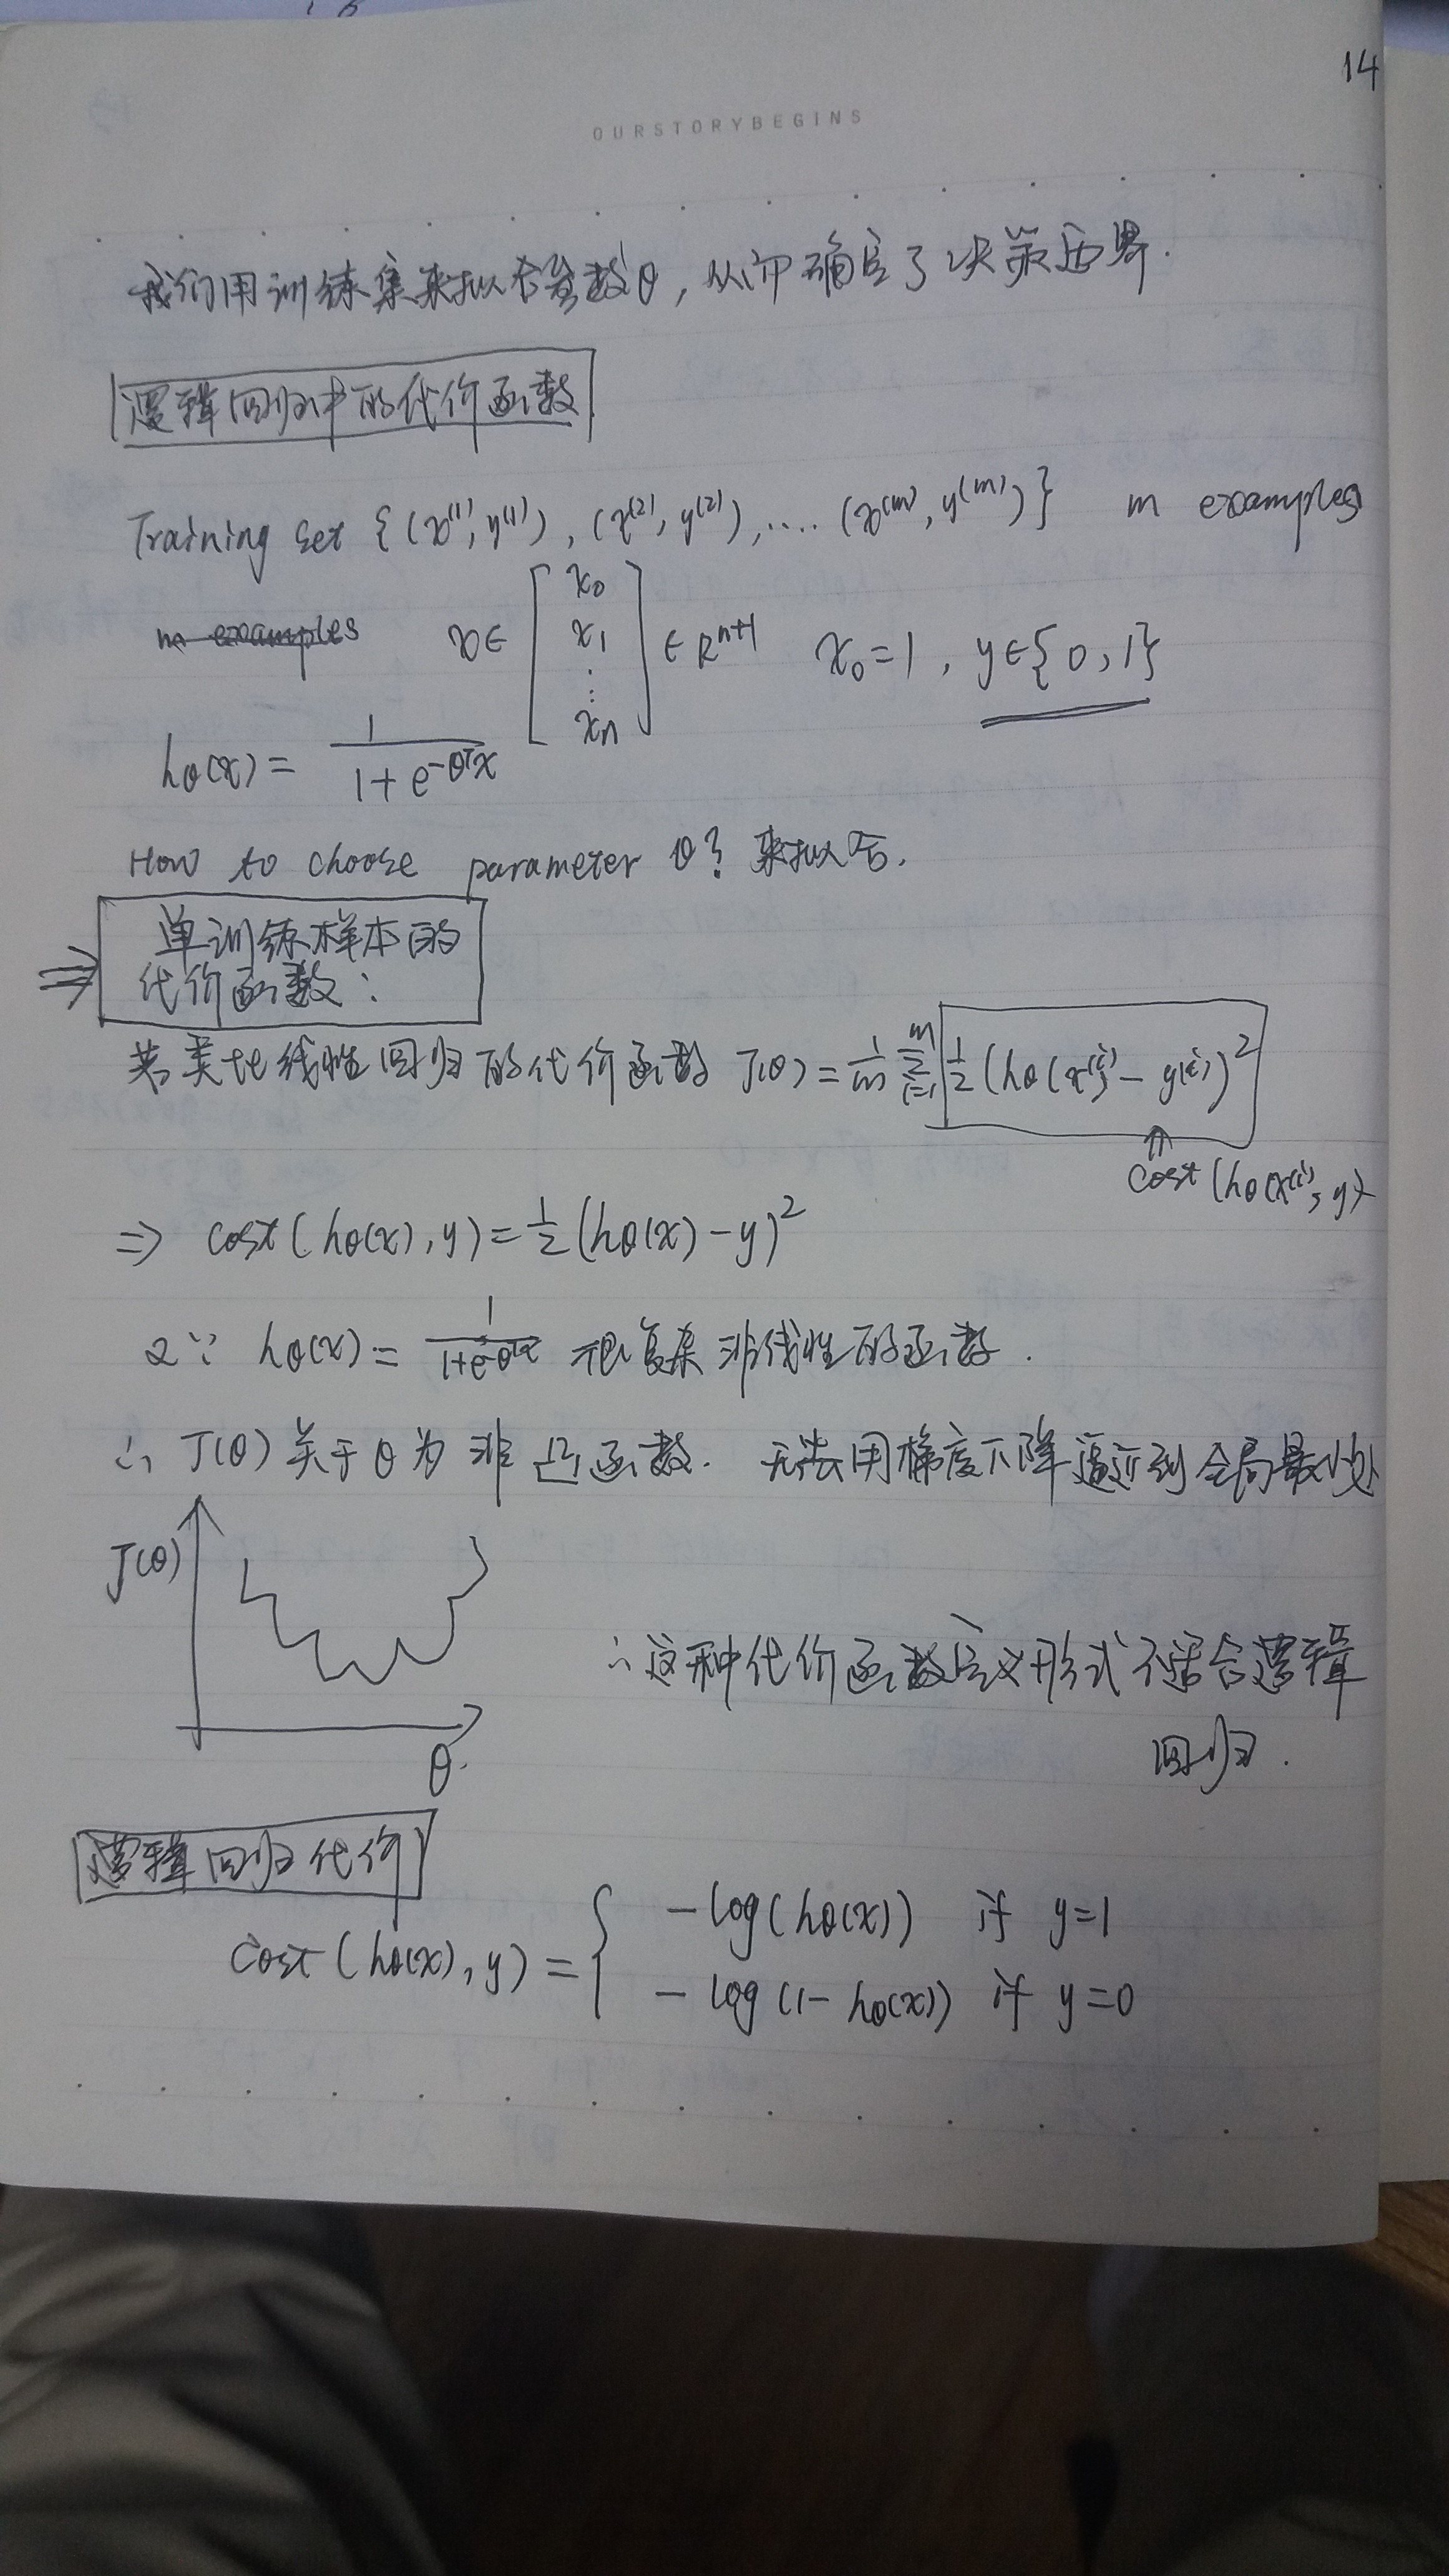 14
OURSTORYBEGINS
我们用训练集来拟合参数θ，从而确定了决策边界.
逻辑回归中的代价函数
Training set {(x⁽¹⁾, y⁽¹⁾), (x⁽²⁾, y⁽²⁾), .... (x⁽ᵐ⁾, y⁽ᵐ⁾)} m examples
m examples x∈ [x₀ x₁ ⋮ xₙ] ∈ Rⁿ⁺¹ x₀=1, y∈{0,1}
hθ(x) = 1/(1+e^(-θᵀx))
How to choose parameter θ? 来拟合.
⇒ 单训练样本的
代价函数:
若类比线性回归的代价函数 J(θ) = 1/m Σᵢ₌₁ᵐ 1/2 (hθ(x⁽ⁱ⁾) - y⁽ⁱ⁾)²
⇑
cost(hθ(x⁽ⁱ⁾, y)
⇒ cost(hθ(x), y) = 1/2 (hθ(x) - y)²
又∵ hθ(x) = 1/(1+e^(-θᵀx)) 很复杂非线性的函数.
∴ J(θ) 关于θ为非凸函数. 无法用梯度下降逼近到全局最小处
J(θ)
θ.
∴这种代价函数定义形式不适合逻辑
回归.
逻辑回归代价
cost(hθ(x), y) = { -log(hθ(x)) if y=1
-log(1-hθ(x)) if y=0